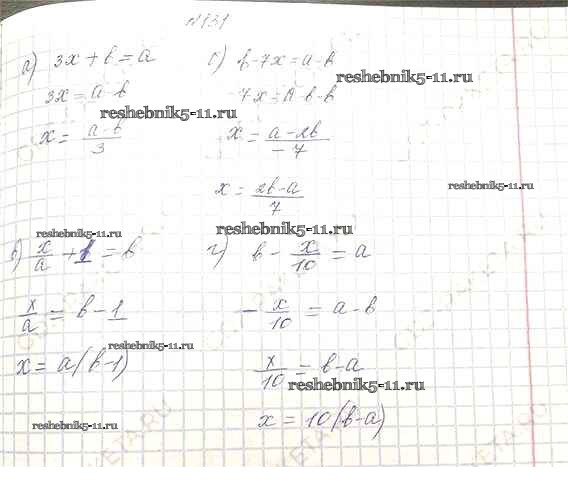 №131
а) 3x + b = a
3x = a - b
x = a - b / 3
б) b - 7x = a - b
- 7x = a - b - b
x = a - 2b / - 7
x = 2b - a / 7
в) x/a + 1 = b
x/a = b - 1
x = a(b - 1)
г) b - x/10 = a
- x/10 = a - b
x/10 = b - a
x = 10(b - a)
reshebnik5-11.ru
reshebnik5-11.ru
reshebnik5-11.ru
reshebnik5-11.ru
reshebnik5-11.ru
reshebnik5-11.ru
reshebnik5-11.ru
reshebnik5-11.ru